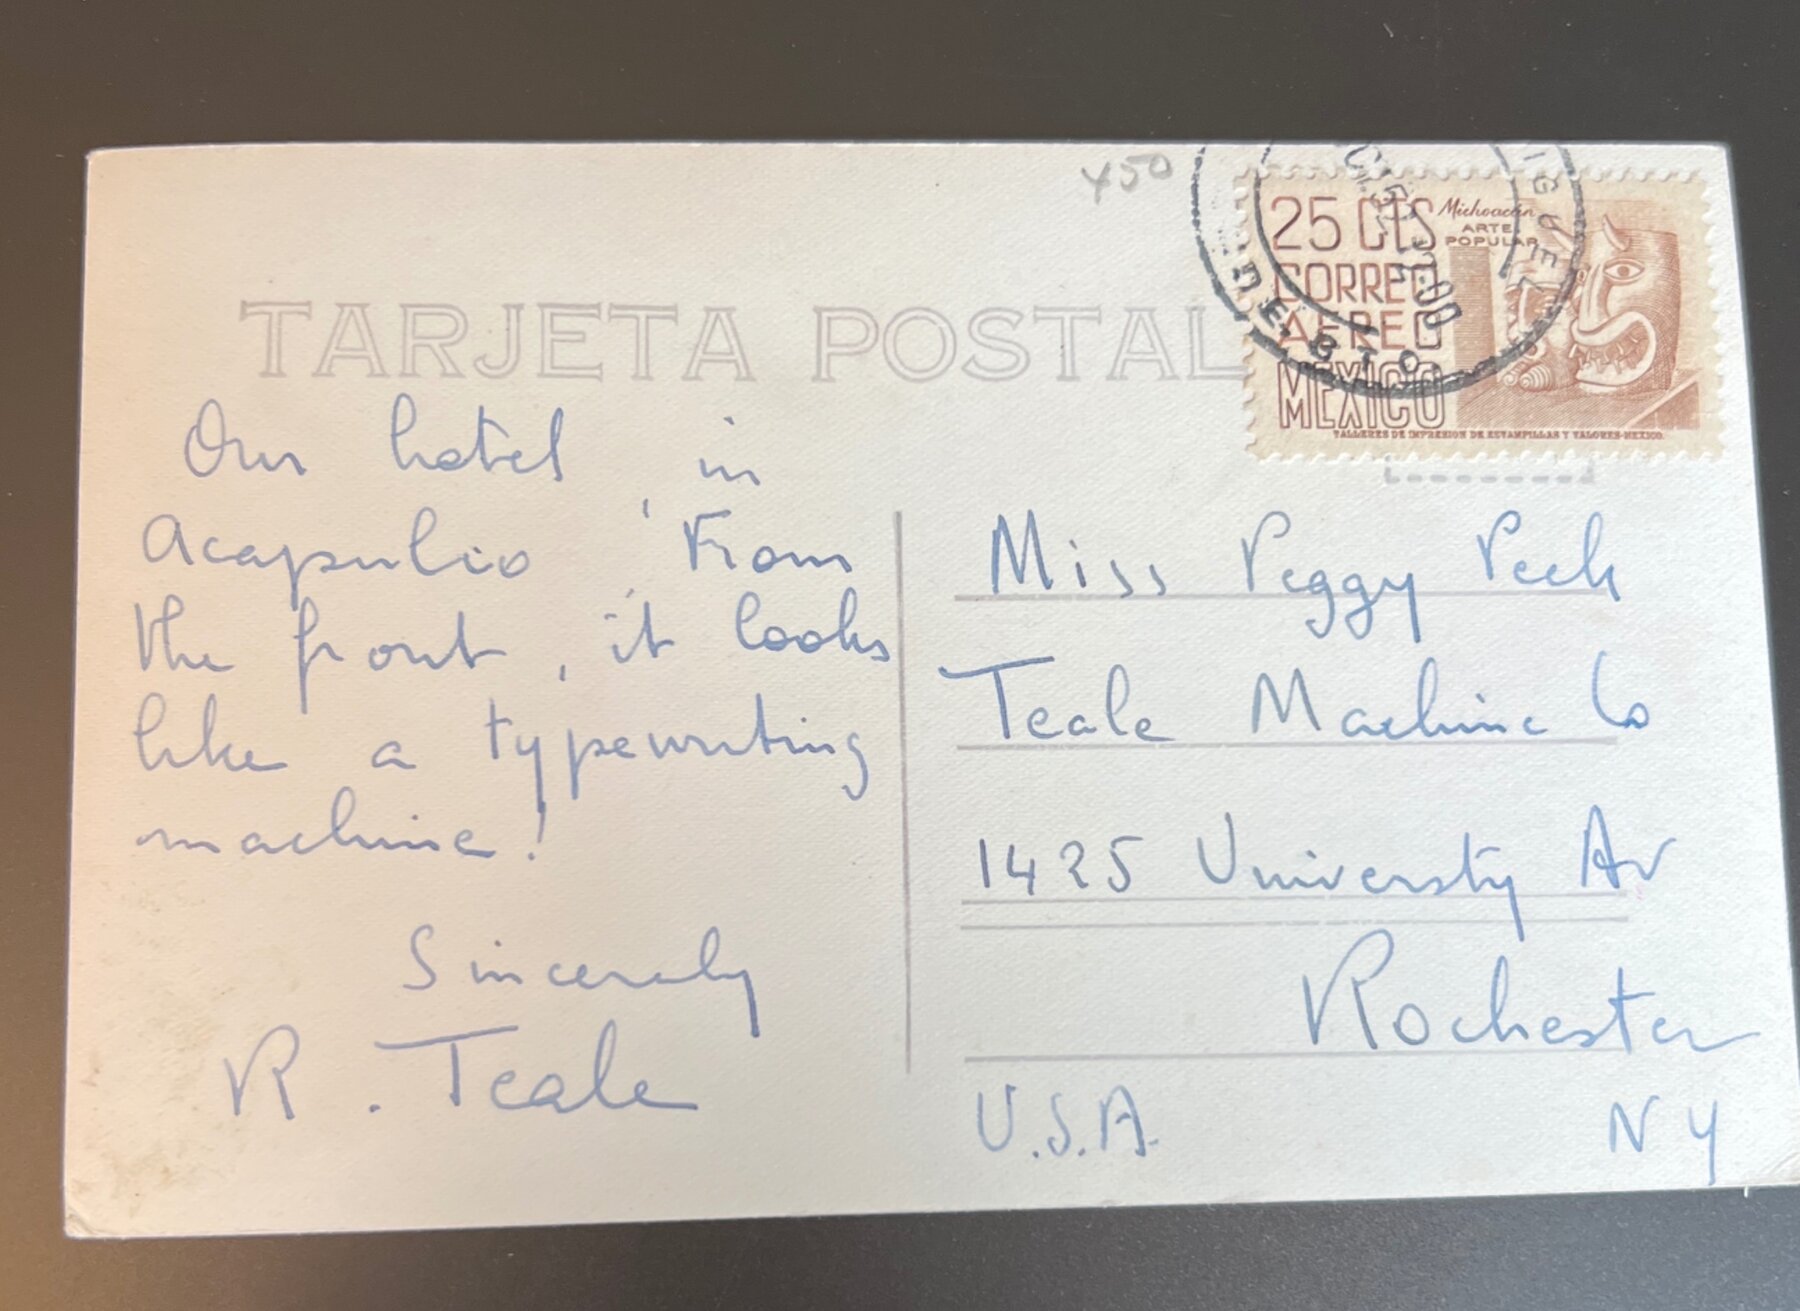 450
25 CTS
CORREO
AEREO
MEXICO
Michoacán
ARTE
POPULAR
TALLERES DE IMPRESION DE ESTAMPILLAS Y VALORES-MEXICO.
TARJETA POSTAL
Our hotel in
Acapulco, From
the front, it looks
like a typewriting
machine!
Sincerely
R. Teale
Miss Peggy Peck
Teale Machine Co
1425 University Av
Rochester
U.S.A. NY